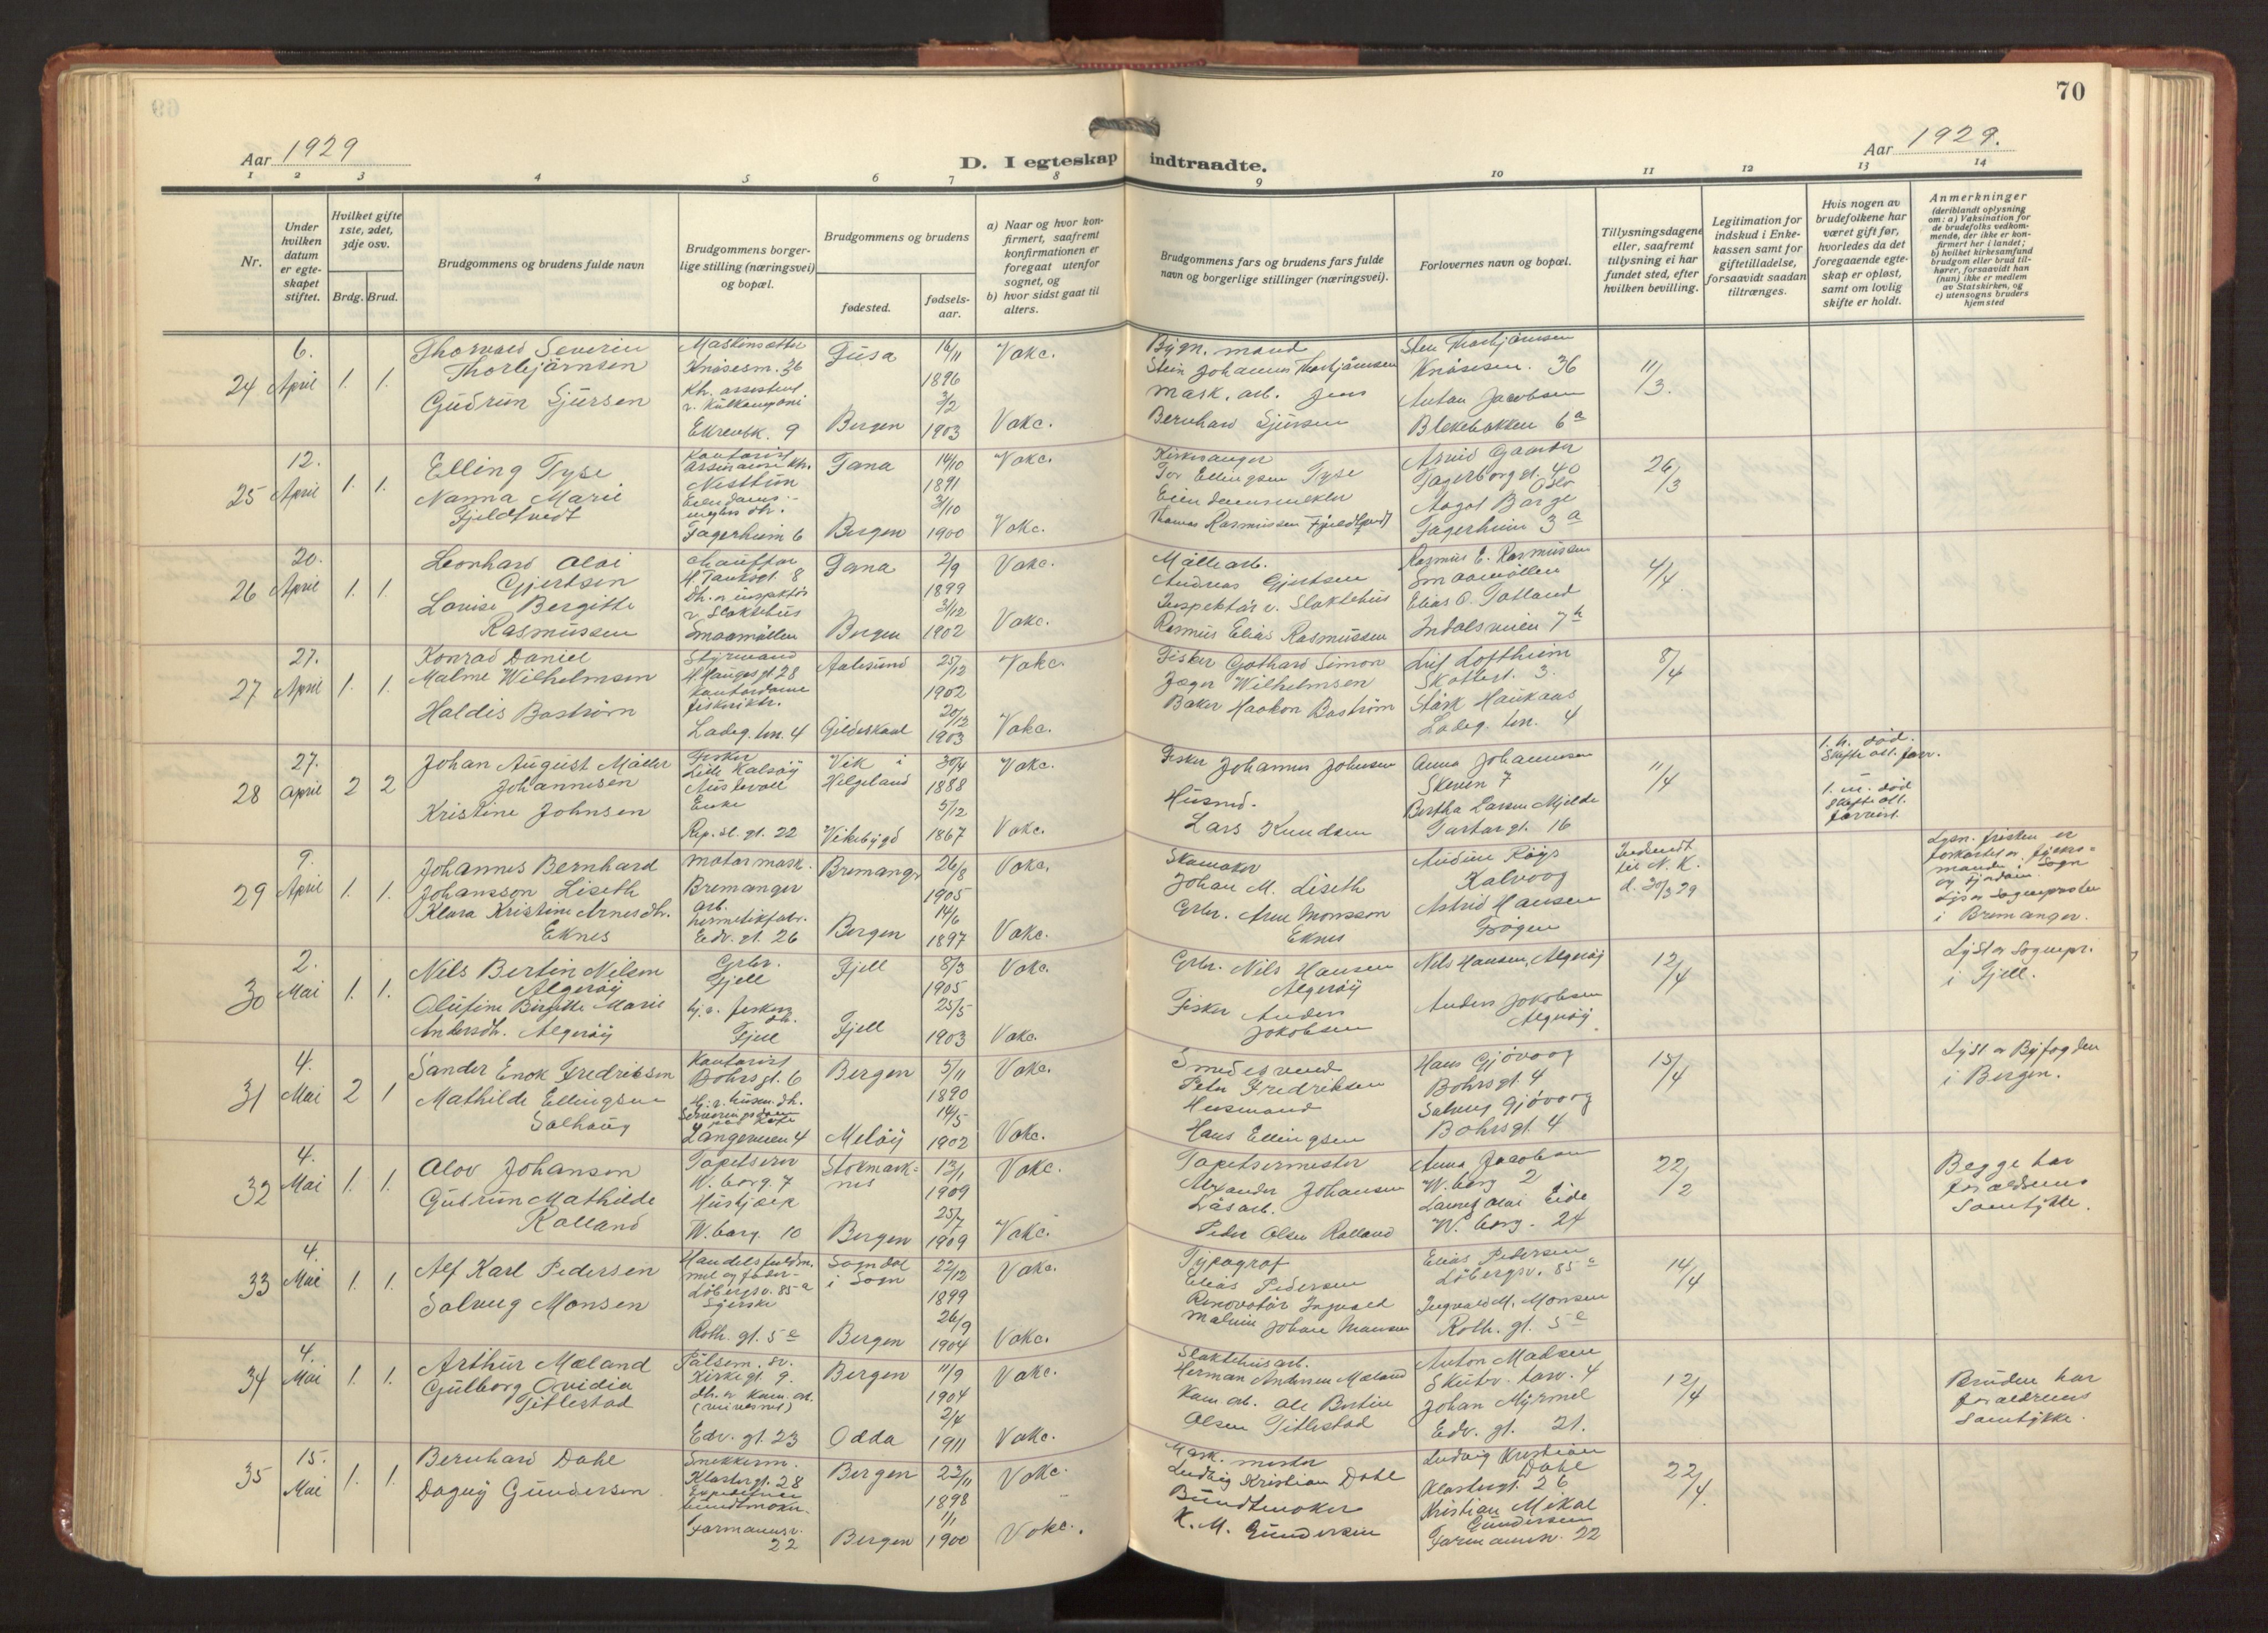 70
Aar 1929
Aar 1929.
D. I egteskap indtraadte.
1 2 3 4 5 6 7 8 9 10 11 12 13 14
Nr.
Under hvilken datum er egteskapet stiftet.
Hvilket gifte 1ste, 2det, 3dje osv.
Brdg. Brud.
Brudgommens og brudens fulde navn
Brudgommens borgerlige stilling (næringsvei) og bopæl.
Brudgommens og brudens
fødested.
fødselsaar.
a) Naar og hvor konfirmert, saafremt konfirmationen er foregaat utenfor sognet, og
b) hvor sidst gaat til alters.
Brudgommens fars og brudens fars fulde navn og borgerlige stillinger (næringsvei).
Forlovernes navn og bopæl.
Tillysningsdagene eller, saafremt tillysning ei har fundet sted, efter hvilken bevilling.
Legitimation for indskud i Enkekassen samt for giftetilladelse, forsaavidt saadan tiltrænges.
Hvis nogen av brudefolkene har været gift før, hvorledes da det foregaaende egteskap er opløst, samt om lovlig skifte er holdt.
Anmerkninger
(deriblandt oplysning om: a) Vaksination for de brudefolks vedkommende, der ikke er konfirmert her i landet; b) hvilket kirkesamfund brudgom eller brud tilhører, forsaavidt han (hun) ikke er medlem av Statskirken, og c) utensogns bruders hjemsted
24 6. April 1. 1.
Thorvald Severin Thorbjørnsen
Knøsesm. 36
Fusa 16/11 1896 Vakc.
Stein Johannes Thorbjørnsen
Sten Thorbjørnsen
Knøsesm. 36
11/3.
Gudrun Sjursen
Ekrenbk. 9
Bergen 3/2 1903 Vakc.
Mask. arb. Jens Bernhard Sjursen
Anton Jacobsen
Blekebakken 6a
25 12. April 1. 1.
Elling Tyse
Kontorist
Nesttun
Fana 14/10 1891 Vakc.
Kirkesanger
Tor Ellingsen Tyse
Fagerborg gt. 40
Oslo
26/3
Nanna Marie Fjeldtvedt
Fagerheim 6
Bergen 3/10 1900 Vakc.
Eiendomsmekler
Thomas Rasmussen Fjeldtvedt
Aagot Barge
Fagerheim 3a
26 20. April 1. 1.
Leonhard Olai Gjertsen
Chauffør
H. Tanksgt. 8
Fana 2/9 1899 Vakc.
Møllearb.
Andreas Gjertsen
Rasmus E. Rasmussen
Smaamøllen
4/4
Louise Bergitte Rasmussen
dh. av inspektør v. Slaktehus
Smaamøllen
Bergen 3/12 1902 Vakc.
Inspektør v. Slaktehus
Rasmus Elias Rasmussen
Elias O. Totland
Indalsveien 7b
27 27. April 1. 1.
Konrad Daniel Malme Wilhelmsen
Styrmand
H. Haugesgt 28
Aalesund 25/12 1902 Vakc.
Fisker Gothard Simon Jæger Wilhelmsen
Leif Loftheim
Skottegt. 3.
8/4
Haldis Bostrøm
Kontordame
Ladeg. ten. 4
Gildeskaal 20/12 1903 Vakc.
Baker Haakon Bostrøm
Ladeg. ten. 4
28 27. April 2 2
Johan August Møller Johannesen
Fisker
Lille Kalsøy
Austevoll
Vik i Helgeland 30/4 1888 Vakc.
Fisker Johannes Johnsen
Anna Johannesen
Skeven 7
11/4
Kristine Johnsen
Enke
Rep. sl. gt. 22
Vikebygd 5/12 1867 Vakc.
Husmd.
Lars Knudsen
Bertha Larsen Mjelde
Tartargt. 16
29 9. April 1. 1.
Johannes Bernhard Johansson Liseth
Motormask.
Bremanger
Bremanger 26/8 1905 Vakc.
Skomaker
Johan M. Liseth
Kalvaag
d. 20/3 29
Klara Kristine Arnesdh. Eknes
arb. hermetikfabr.
Edv. gt. 26
Bergen 14/6 1897 Vakc.
Grbr. Arne Monsson Eknes
Astrid Hansen
i Bremanger.
30 2. Mai 1. 1.
Nils Bertin Nilsen Algerøy
Grbr.
Fjell
Fjell 8/3 1905 Vakc.
Grbr. Nils Hansen Algerøy
Nils Hansen, Algerøy
12/4
Lyst av Sognepr. i Fjell.
Olufine Birgitte Marie Andersdh. Algerøy
Fjell
Fjell 25/5 1903 Vakc.
Fisker Anders Jakobsen
Anders Jakobsen Algerøy
31 4. Mai 2 1
Sander Enok Fredriksen
Kontorist
Bohrsgt. 6
Bergen 5/11 1890 Vakc.
Smedesvend
Peter Fredriksen
Hans Gjøvaag
Bohrsgt. 4
15/4
Lyst av Byfogden i Bergen.
Mathilde Ellingsen Solhaug
Langeveien 4
Meløy 14/5 1902 Vakc.
Husmand
Hans Ellingsen
Solveig Gjøvaag
Bohrsgt. 4
32 4. Mai 1. 1.
Olov Johansen
Tapetserer
W. borg. 7
Stokmarknes 13/1 1909 Vakc.
Tapetsermester
Alexander Johansen
Anna Jacobsen
W. borg 2
22/2
Begge har forældrenes samtykke.
Gudrun Mathilde Kolland
Hushjælp
W. borg. 10
Bergen 25/7 1909 Vakc.
Peder Olsen Kolland
Eide
W. borg. 24
33 4. Mai 1. 1.
Alf Karl Pedersen
Løbergsv. 85a
Sogndal i Sogn 22/12 1899 Vakc.
Typograf
Elias Pedersen
Elias Pedersen
Løbergsv. 85a
14/4
Solveig Monsen
Roth. gt. 5e
Bergen 26/9 1904 Vakc.
Renovatør Ingvald Malvin Johan Monsen
Ingvald M. Monsen
Roth. gt. 5e
34 4. Mai 1. 1.
Arthur Mæland
Pølsem. sv.
Kirkegt. 9.
Bergen 11/9 1904 Vakc.
Slaktehusarb.
Herman Andersen Mæland
Anton Madsen
Skutev. torv. 4
12/4
Bruden har forældrenes samtykke.
Gulborg Ovidia Titlestad
dh. av kom. arb.
Edv. gt. 23
Odda 2/4 1911 Vakc.
Kom arb. Ole Bertin Olsen Titlestad
Johan Myrmel
Edv. gt. 21.
35 15. Mai 1. 1.
Bernhard Dahl
Snekkerm.
Klostergt. 28
Bergen 22/11 1898 Vakc.
Mask. mester
Ludvig Kristian Dahl
Ludvig Kristian Dahl
Klostergt. 26
22/4.
Dagny Gundersen
Formannsv. 22
Bergen 1/1 1900 Vakc.
Bundtmaker
K. M. Gundersen
Kristian Mikal Gundersen
Formannsv. 22